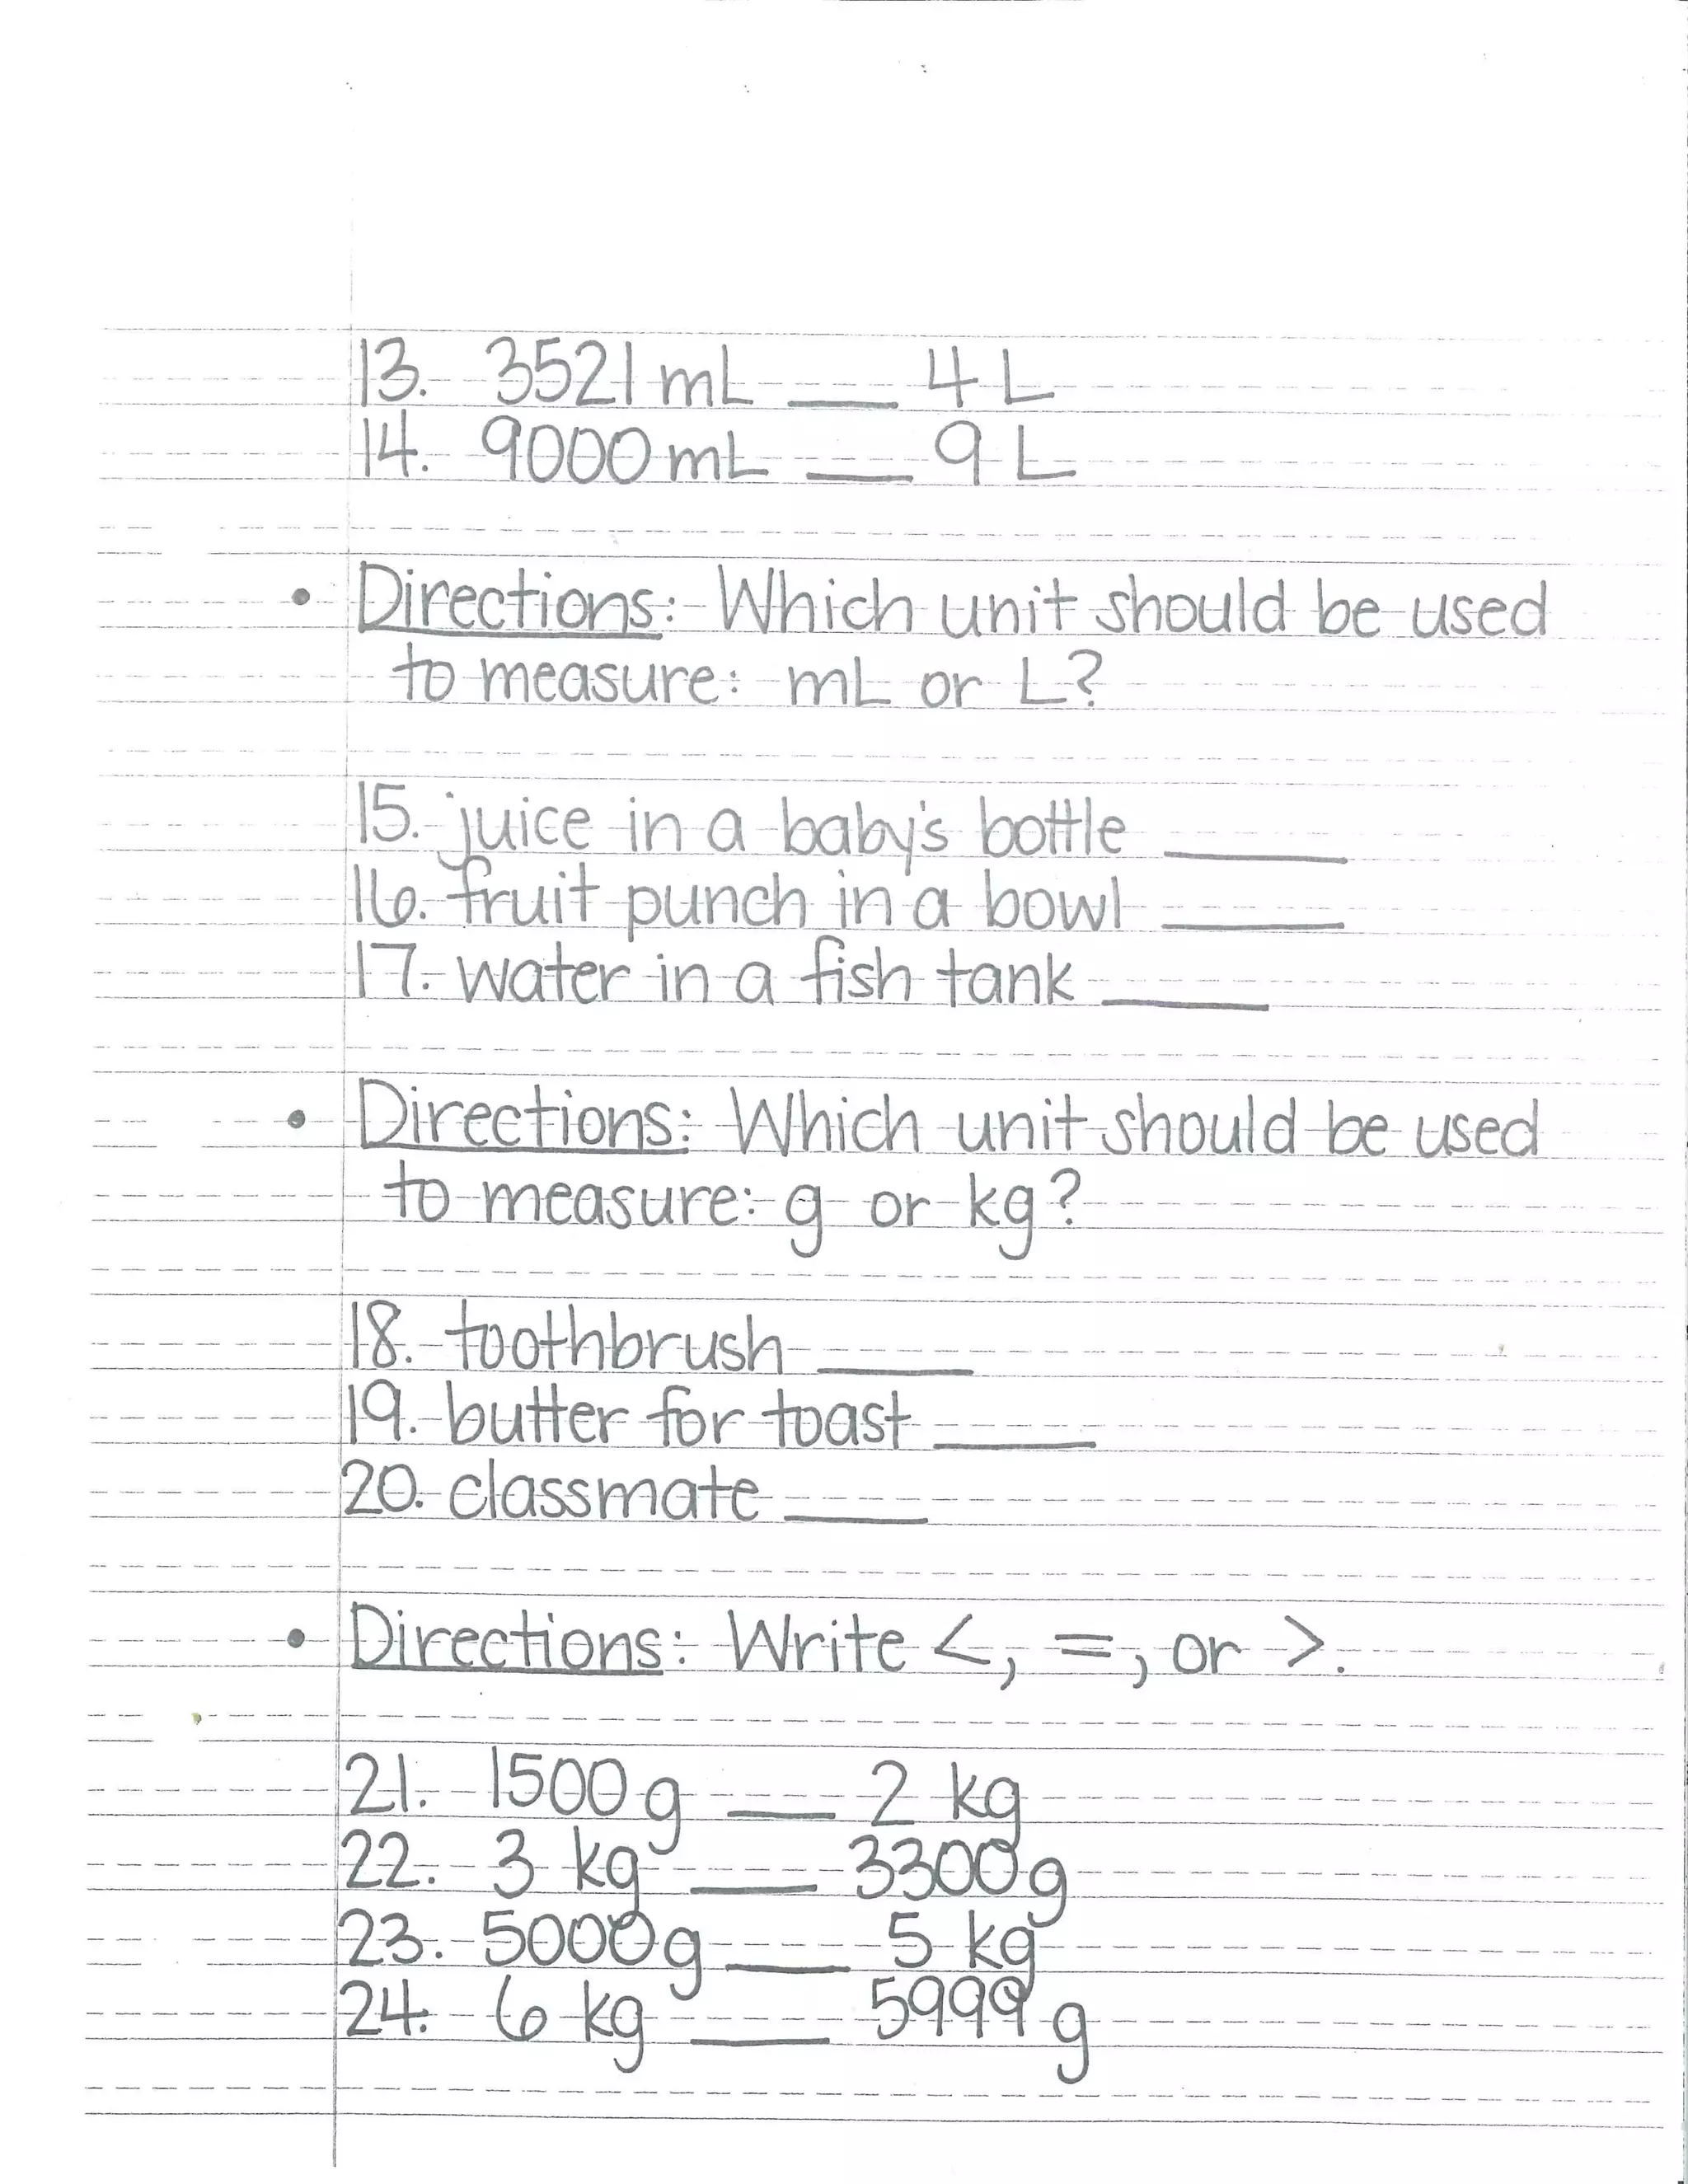 13. 3521 mL ___ 4 L
14. 9000 mL ___ 9 L
• Directions: Which unit should be used
to measure: mL or L?
15. juice in a baby's bottle ___
16. fruit punch in a bowl ___
17. water in a fish tank ___
• Directions: Which unit should be used
to measure: g or kg?
18. toothbrush ___
19. butter for toast ___
20. classmate ___
• Directions: Write <, =, or >.
21. 1500 g ___ 2 kg
22. 3 kg ___ 3300 g
23. 5000 g ___ 5 kg
24. 6 kg ___ 5999 g